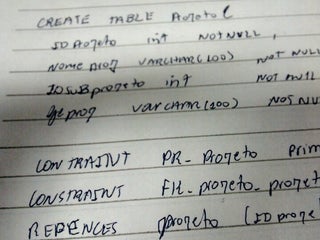 CREATE TABLE Projeto (
IDProjeto int NOT NULL,
Nomeproj VARCHAR(100) NOT NULL
IDSubprojeto int NOT NULL
varchar(200) NOT NU
CONTRAINT PK_Projeto prim
CONSTRAINT FK_projeto_projet
projeto (IDproje